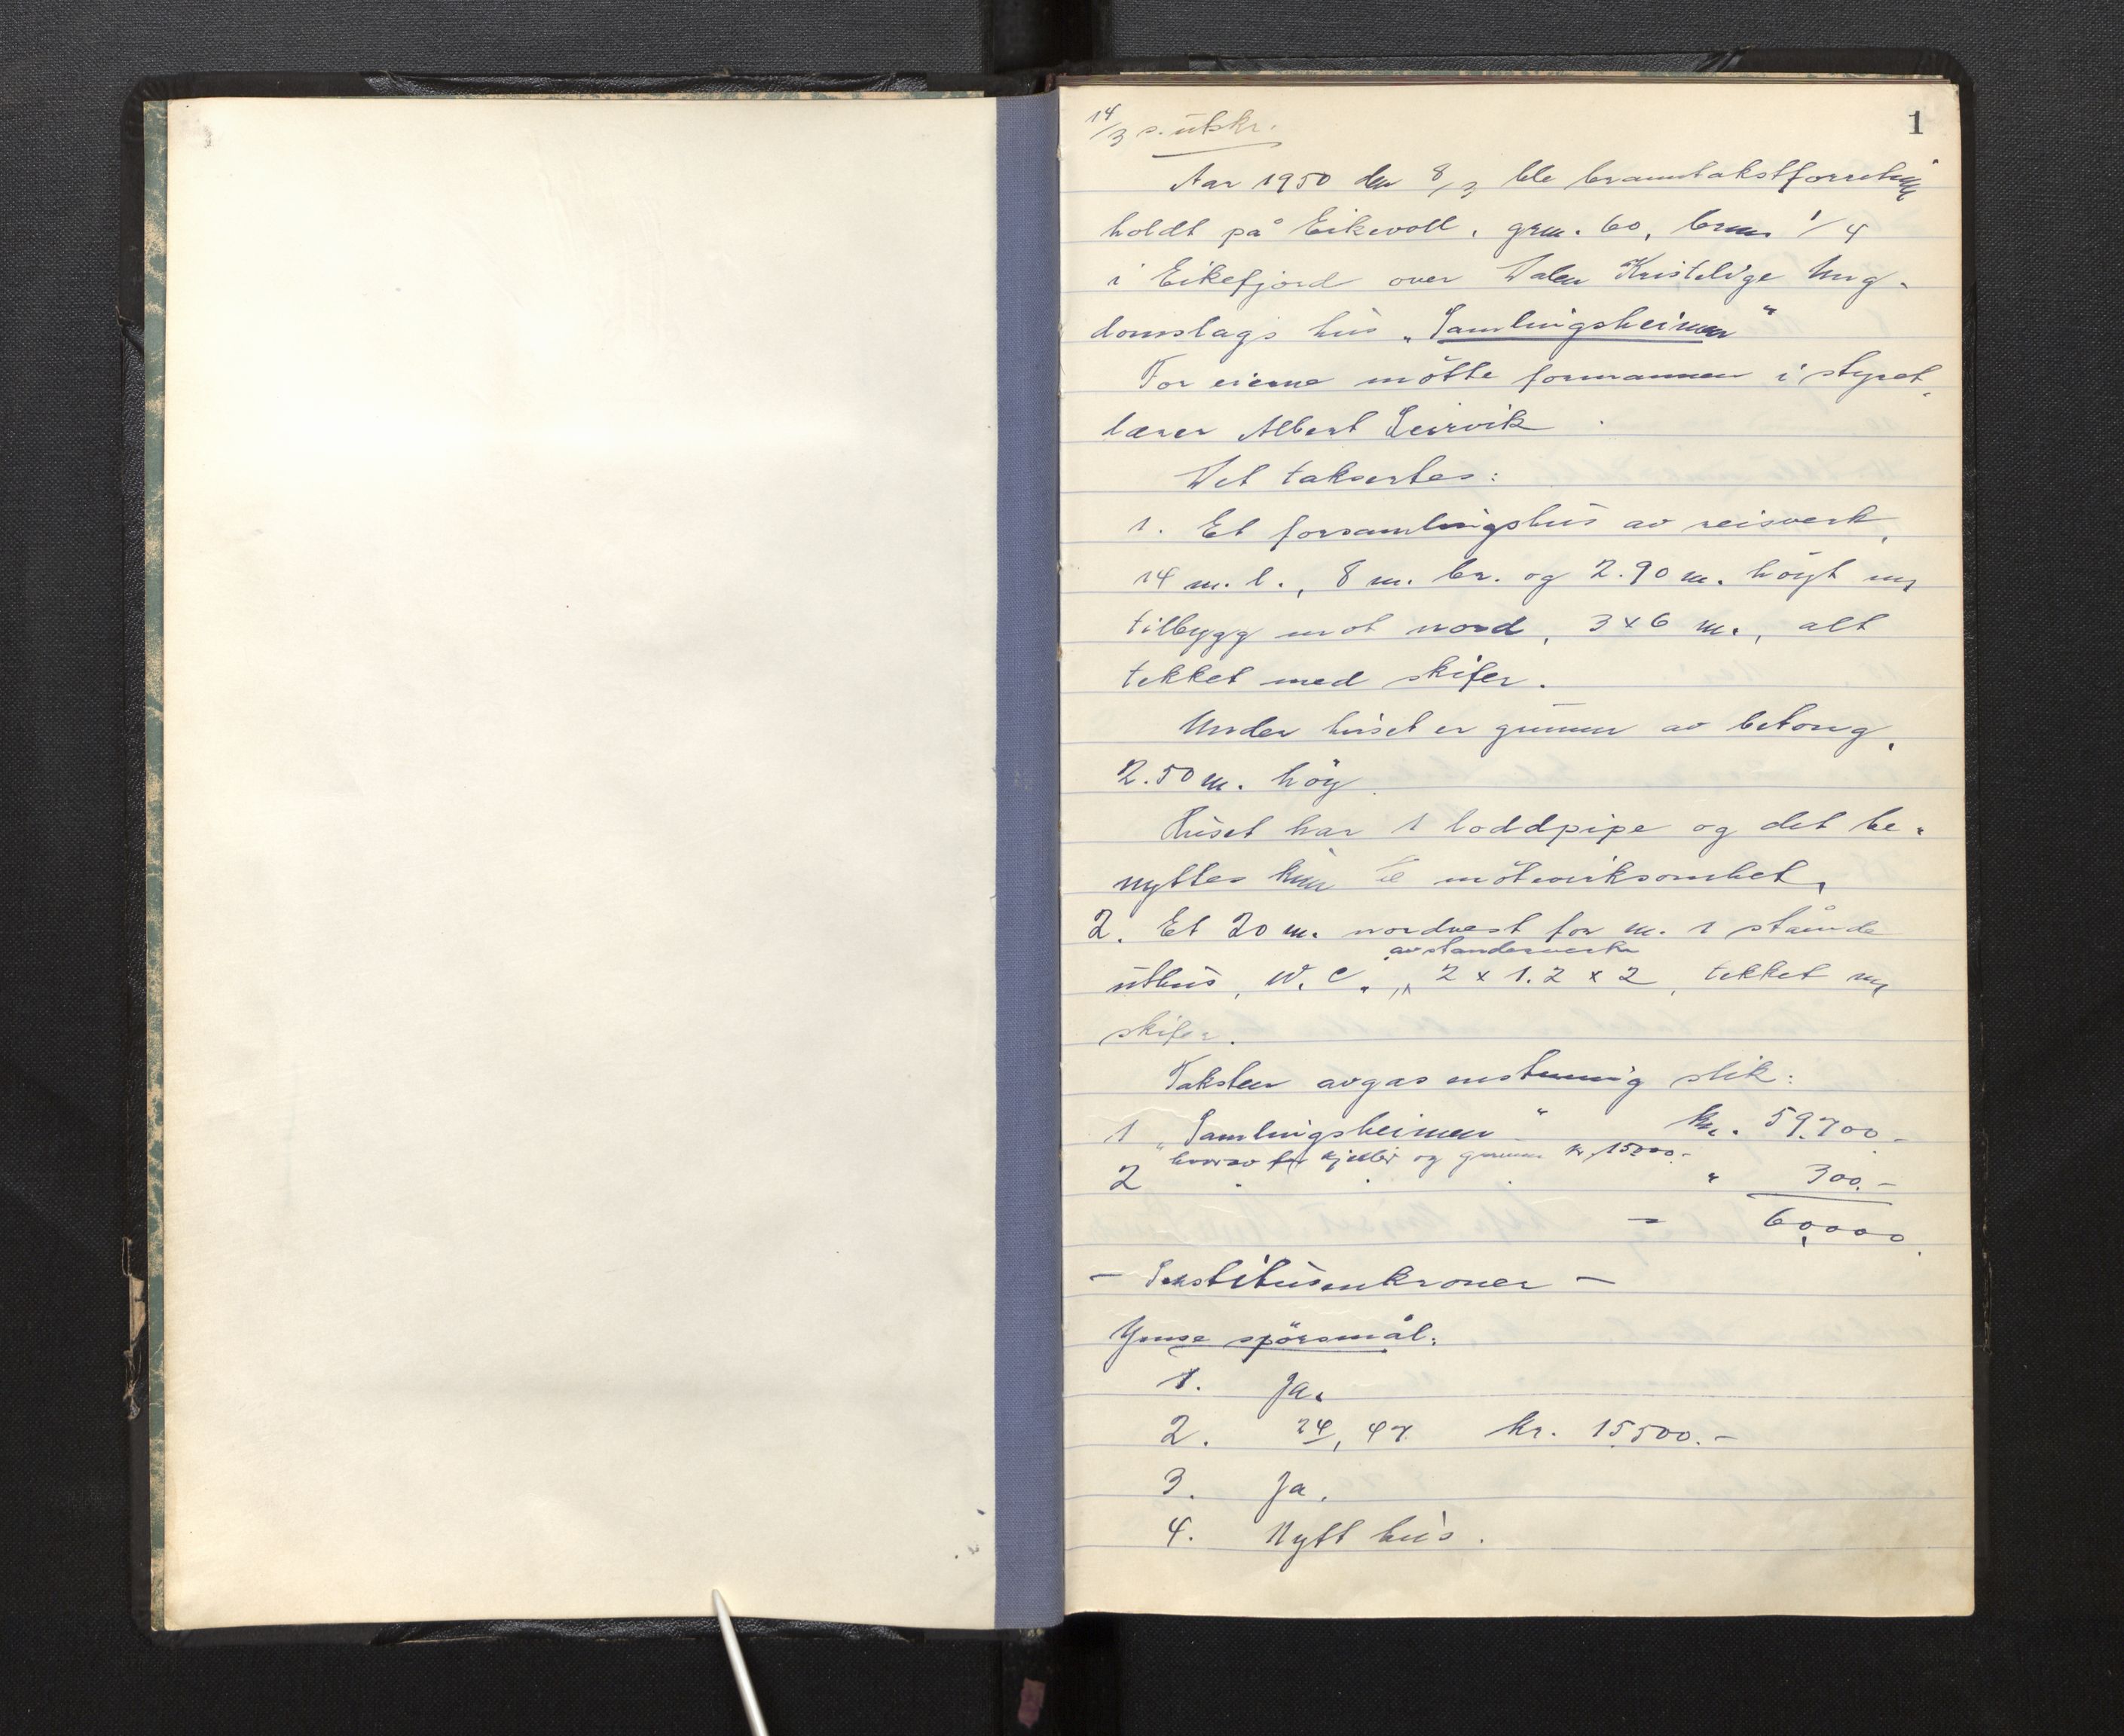 1
14/3 s. utskr.
Aar 1950 den 8/3 ble branntakstforretning
holdt på Eikevoll, grn. 60, brn. 1/4
i Eikefjord over Dalen Kristelige Ung-
domslags hus „Samlingsheimen"
For eierne mötte formannen i styret,
lærer Albert Leirvik.
Det taksertes:
1. Et forsamlingshus av reisverk,
14 m. l., 8 m. br. og 2.90 m. höyt m/
tilbygg mot nord, 3 x 6 m., alt
tekket med skifer.
Under huset er grunnmur av betong,
2.50 m. höy.
Huset har 1 loddpipe og det be-
nyttes kun til mötevirksomhet.
2. Et 20 m. nordvest for nr. 1 stående
av standerverk
uthus, W.C., 2 x 1.2 x 2, tekket m/
skifer.
Taksten avgas enstemmig slik:
1 „Samlingsheimen" kr. 59.700.-
hvorav for kjeller og grunnmur kr. 15000.-
2 " 300.-
= 60,000.
- Sekstitusenkroner -
Ymse spörsmål:
1. Ja.
2. 24/, 47 kr. 15,500.-
3. Ja.
4. Nytt hus.